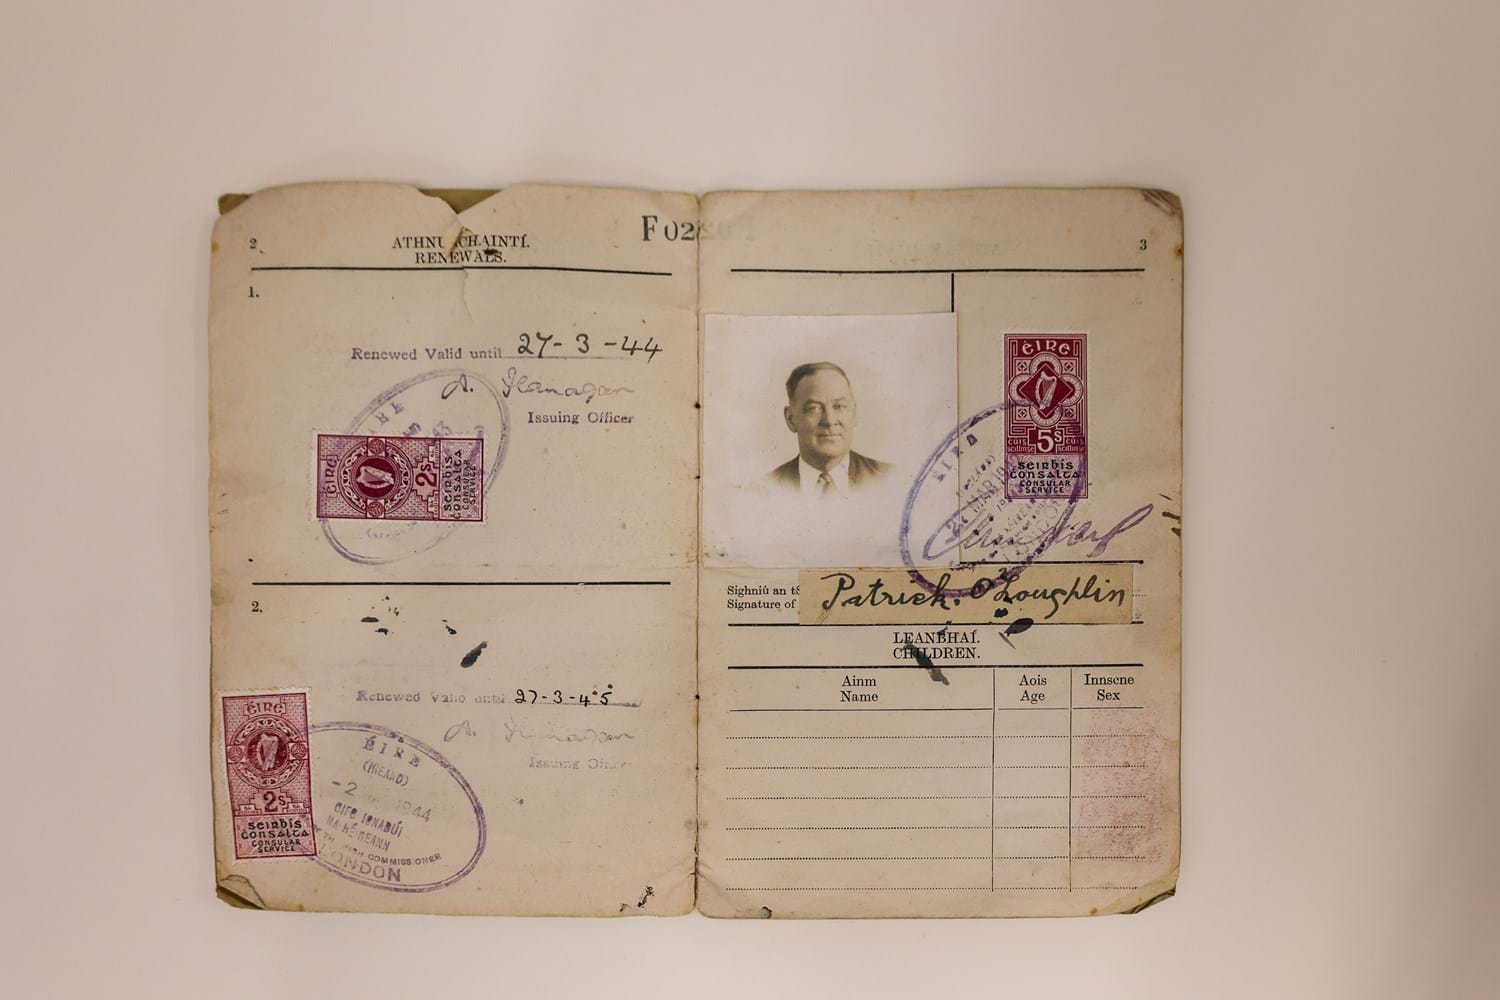 2
ATHNUACHAINTÍ.
RENEWALS.
1.
Renewed Valid until 27-3-44
Issuing Officer
ÉIRE
2s
seirbís
consalta
CONSULAR
SERVICE
2.
Renewed Valid until 27-3-45
Issuing Officer
ÉIRE
2s
seirbís
consalta
CONSULAR
SERVICE
ÉIRE
(IRELAND)
1944
NA hÉIREANN
HIGH COMMISSIONER
LONDON
F02
3
ÉIRE
5s
cúig
scillinge
cúig
scillinge
seirbís
consalta
CONSULAR
SERVICE
Sighniú an tS
Signature of
Patrick. O'Loughlin
LEANBHAÍ.
CHILDREN.
Ainm
Name
Aois
Age
Innscne
Sex